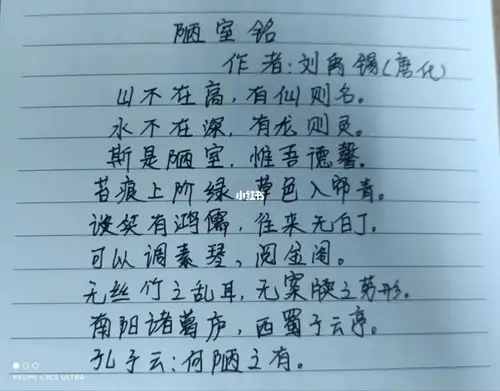 陋室铭
作者:刘禹锡(唐代)
山不在高,有仙则名。
水不在深,有龙则灵。
斯是陋室,惟吾德馨。
苔痕上阶绿 草色入帘青。
小红书
谈笑有鸿儒,往来无白丁。
可以调素琴,阅金阁。
无丝竹之乱耳,无案牍之劳形。
南阳诸葛庐,西蜀子云亭。
孔子云:何陋之有。
REDMI K40S ULTRA